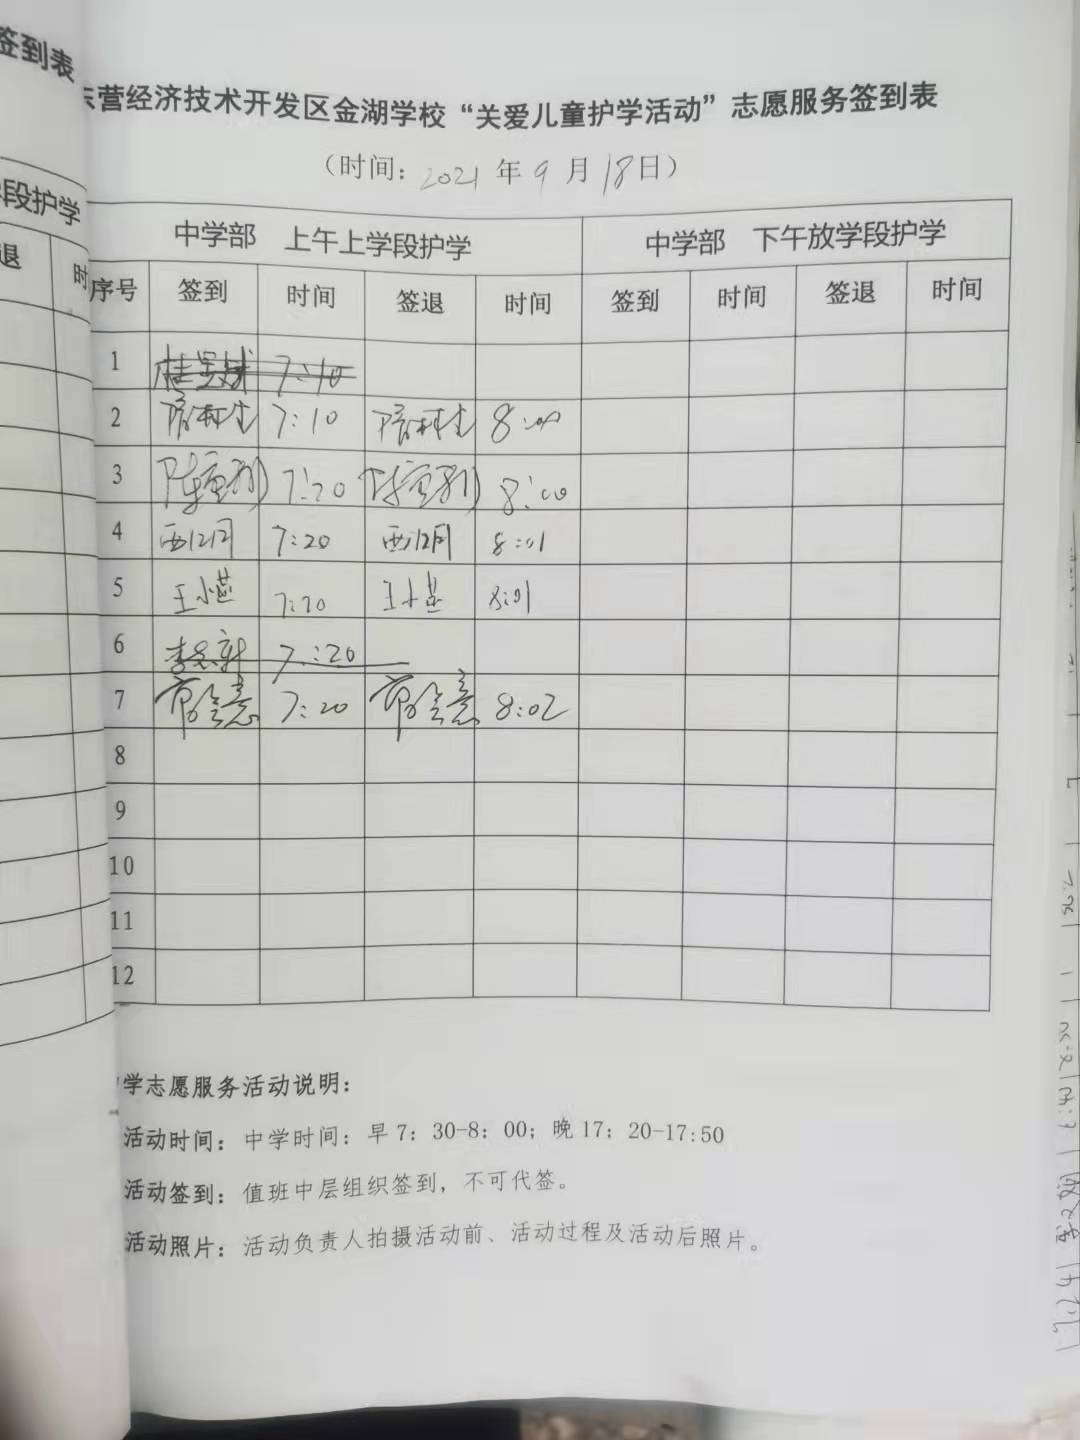 签到表
东营经济技术开发区金湖学校“关爱儿童护学活动”志愿服务签到表
（时间：2021年9月18日）
段护学
退 时
中学部 上午上学段护学 中学部 下午放学段护学
序号 签到 时间 签退 时间 签到 时间 签退 时间
1 7:10
2 7:10 8:00
3 7:20 8:00
4 7:20 8:01
5 王小燕 7:20 王小燕 8:01
6 7:20
7 7:20 8:02
8
9
10
11
12
学志愿服务活动说明：
活动时间：中学时间：早7：30-8：00；晚17：20-17:50
活动签到：值班中层组织签到，不可代签。
活动照片：活动负责人拍摄活动前、活动过程及活动后照片。